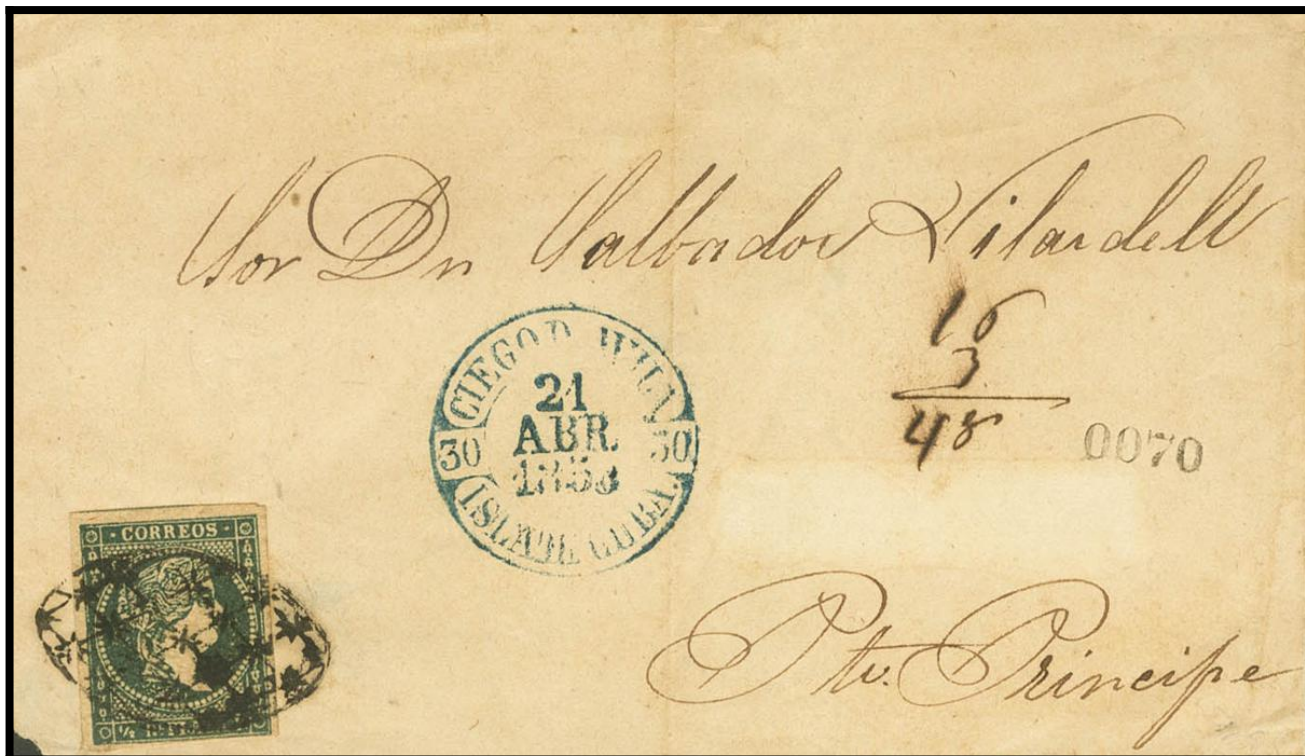 Sor Dn Salbador Vilardell
16
3
48
0070
CIEGO D.
21
ABR.
30 30
ISLA DE CUBA.
CORREOS
Pto. Principe